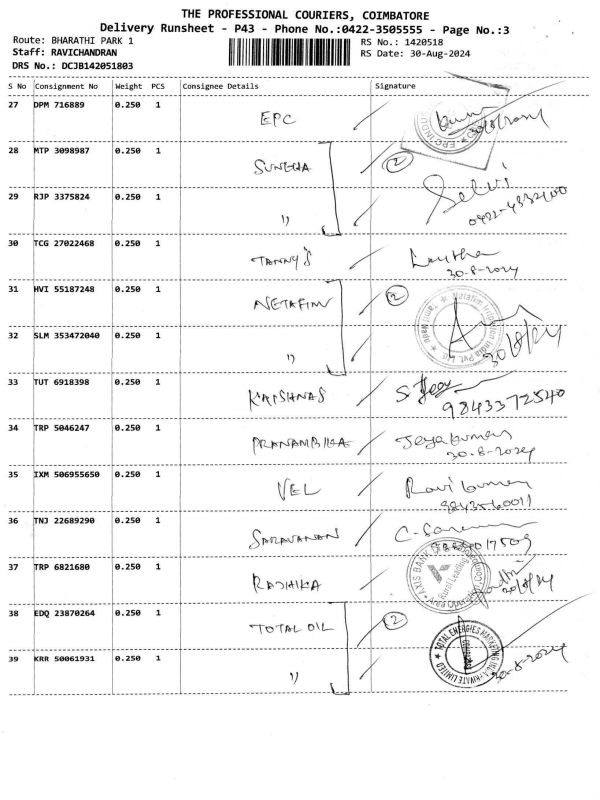 THE PROFESSIONAL COURIERS, COIMBATORE
Delivery Runsheet - P43 - Phone No.:0422-3505555 - Page No.:3
Route: BHARATHI PARK 1 RS No.: 1420518
Staff: RAVICHANDRAN RS Date: 30-Aug-2024
DRS No.: DCJB142051803
S No Consignment No Weight PCS Consignee Details Signature
27 DPM 716889 0.250 1 EPC
28 MTP 3098987 0.250 1 2
29 RJP 3375824 0.250 1 " Selvi
30 TCG 27022468 0.250 1 TANNY'S
30-8-2024
31 HVI 55187248 0.250 1 NETAFIM 2
32 SLM 353472040 0.250 1 " 30/8/24
33 TUT 6918398 0.250 1 KRISHNAS
9843372540
34 TRP 5046247 0.250 1 PRANAMBIKA Jeyakumar
30-8-2024
35 IXM 506955650 0.250 1 VEL Ravikumar
9843560011
36 TNJ 22689290 0.250 1 SARAVANAN
37 TRP 6821680 0.250 1 RADHIKA AXIS BANK
30/8/24
38 EDQ 23870264 0.250 1 TOTAL OIL 2 TOTAL ENERGIES MARKETING INDIA PRIVATE LIMITED
39 KRR 50061931 0.250 1 " 30-8-2024